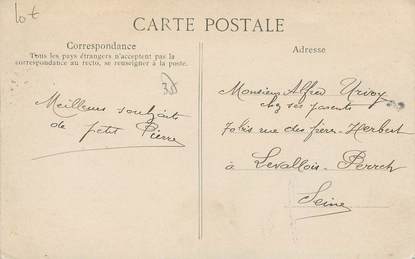 10€
CARTE POSTALE
Correspondance
Tous les pays étrangers n'acceptent pas la
correspondance au recto, se renseigner à la poste.
Meilleurs souhaits
de petit Pierre
Adresse
Monsieur Alfred Urvoy
chez ses parents
rue des frères Herbert
à Levallois-Perret
Seine